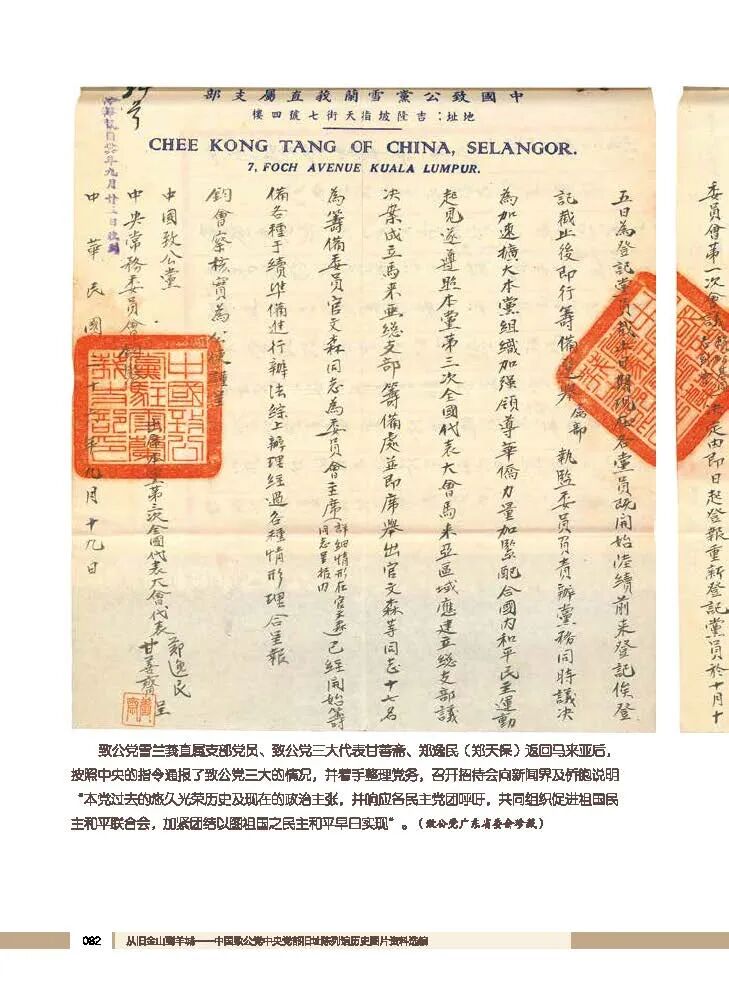 中國致公黨雪蘭莪直屬支部
地址：吉隆坡指天街七號四樓
CHEE KONG TANG OF CHINA, SELANGOR.
7, FOCH AVENUE KUALA LUMPUR.
委員會第一次會議 決定由即日起登報重新登記黨員於十月十
五日為登記黨員截止日期現在各黨員既開始陸續前來登記俟登
記截止後即行籌備選舉 執監委員負責辦黨務同時議決
為加速擴大本黨組織加强領導華僑力量加緊配合國内和平民主運動
起見遂遵照本黨第三次全國代表大會馬來亞區域應建立總支部議
決案成立馬來亞總支部籌備處並即席舉出官文森等同志十七名
為籌備委員官文森同志為委員會主席（詳細情形在官文森同志呈報内）已經開始籌
備各種手續準備進行辦法綜上辦理經過各種情形理合呈報
鈞會察核實為公便謹呈
中國致公黨
中央常務委員會
出席本黨第三次全國代表大會代表 鄭逸民
甘善齋 呈
中華民國 年九月十九日
致公党雪兰莪直属支部党员、致公党三大代表甘善斋、郑逸民（郑天保）返回马来亚后，
按照中央的指令通报了致公党三大的情况，并着手整理党务，召开招待会向新闻界及侨胞说明
“本党过去的悠久光荣历史及现在的政治主张，并响应各民主党团呼吁，共同组织促进祖国民
主和平联合会，加紧团结以图祖国之民主和平早日实现”。（致公党广东省委会珍藏）
082 从旧金山到羊城——中国致公党中央党部旧址陈列馆历史图片资料选编